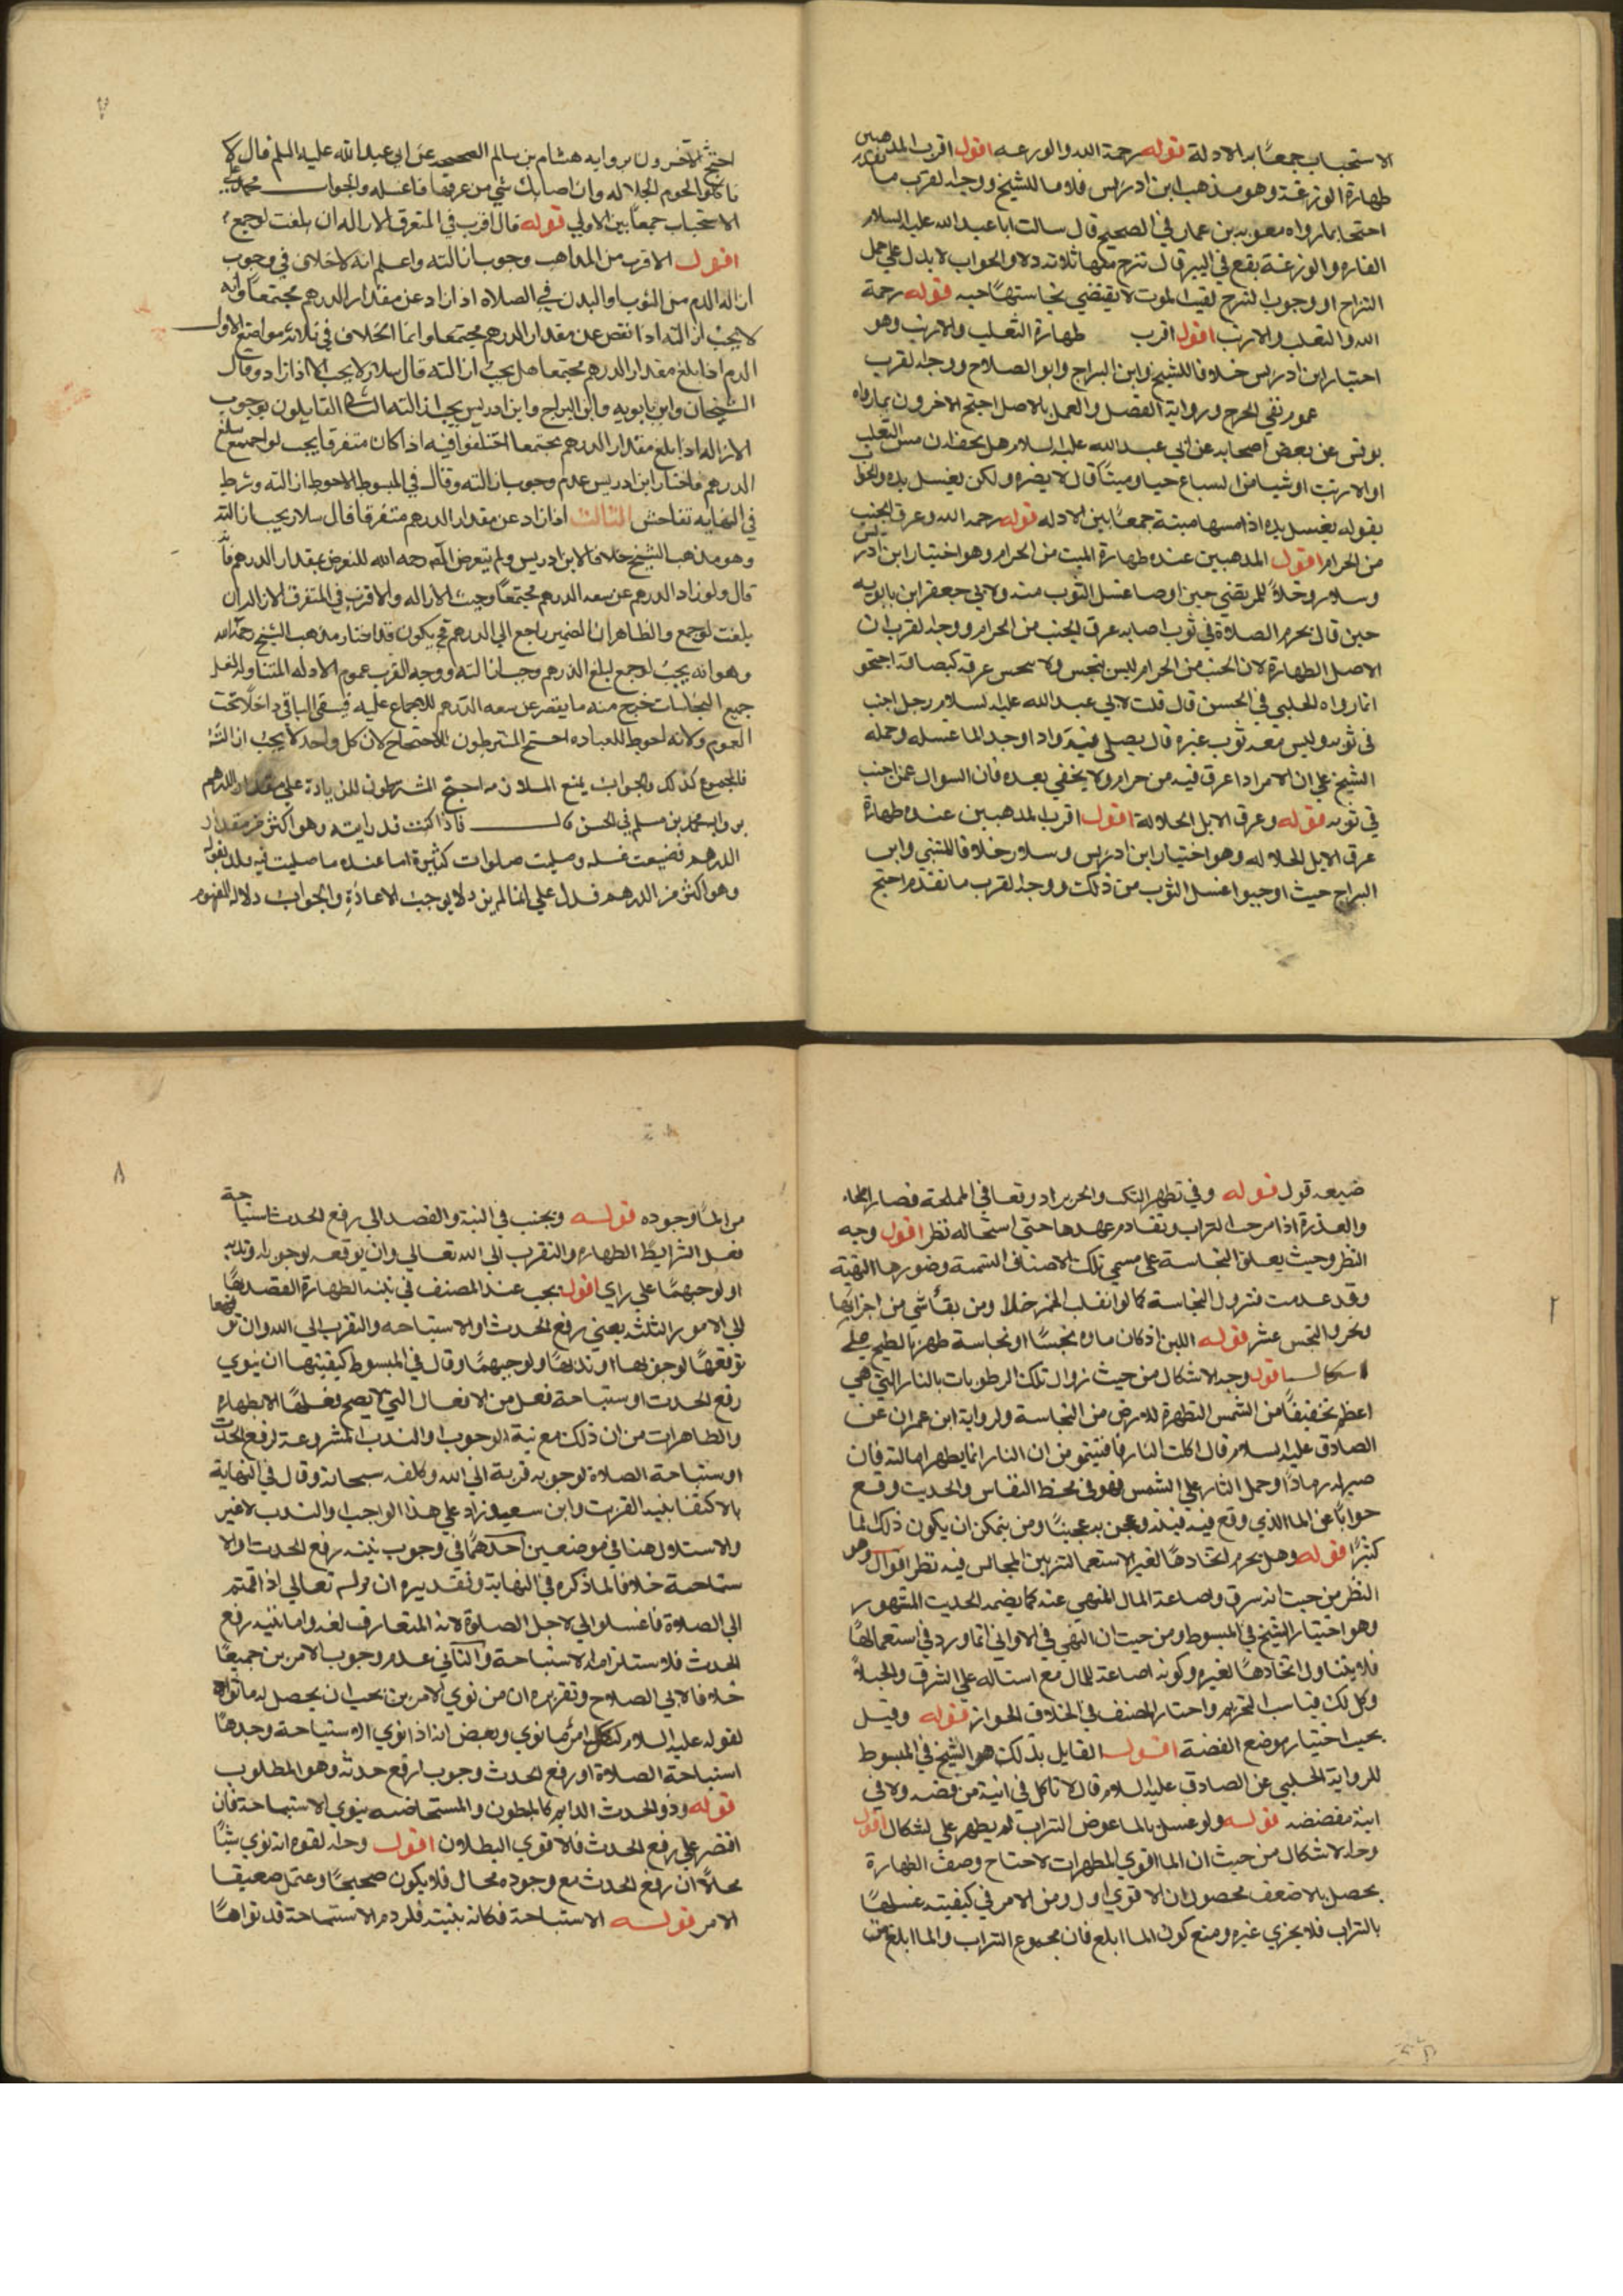 الاستحباب جمعًا بين الادلة قوله رحمة الله والوزغه اقول اقرب المذهبين
طهارة الوزغة وهو مذهب ابن ادريس خلافا للشيخ ووجه القرب ما تقدم
احتجا بما رواه معويه بن عمار في الصحيح قال سالت ابا عبد الله عليه السلام
الفاره والوزغة يقع في البير قال تنزح منها ثلاثه دلاء والجواب لا يدل علي
النزاح او وجوب النزح لقيد الموت لا يقتضي نجاستها حيه قوله رحمة
الله والثعلب والارنب اقول اقرب طهارة الثعلب والارنب وهو
اختيار ابن ادريس خلافا للشيخ وابن البراج وابو الصلاح ووجه القرب
عموم نفي الحرج ورواية الفضل والعمل بالاصل احتج الاخرون بما رواه
يونس عن بعض اصحابه عن ابي عبد الله عليه السلام هل يحل ان مس الثعلب
او الارنب او شيا من السباع حيا او ميتًا قال لا يضره ولكن يغسل يده والجواب
بقوله يغسل يده اذا مسها ميتة جمعًا بين الادله قوله رحمه الله وعرق الجنب
من الحرام اقول المذهبين عنده طهارة الميت من الحرام وهو اختيار ابن ادريس
وسلار وخلافًا للمرتضي حين اوصا غسل الثوب منه ولابي جعفر ابن بابويه
حين قال بحرم الصلاة في ثوب اصابه عرق الجنب من الحرام ووجه القرب ان
الاصل الطهارة لان الجنب من الحرام ليس بنجس ولا ينجس عرقه كبصاقه احتجو
انما رواه الحلبي في الحسن قال قلت لابي عبد الله عليه السلام رجل اجنب
في ثوبه وليس معه ثوب غيره قال يصلي فيه واذا وجد الما غسله وحمله
الشيخ علي ان الامر اذا عرق فيه من حرام ولا يخفي بعده فان السوال عمن اجنب
في ثوبه قوله وعرق الابل الجلالة اقول اقرب المذهبين عنده طهارة
عرق الابل الجلاله وهو اختيار ابن ادريس وسلار خلافا للشيخ وابن
البراج حيث اوجبوا غسل الثوب من ذلك ووجه القرب ما تقدم احتج
٧
احتج الاخرون برواية هشام بن سالم الصحيحه عن ابي عبد الله عليه السلم قال لا
تاكلوا لحوم الجلاله وان اصابك شي من عرقها فاغسله والجواب محمول علي
الاستحباب جمعًا بين الاولي قوله قال اقرب في المتفرق الازاله ان بلغت لو جمع
اقول الاقرب من المذاهب وجوب ازالته واعلم انه لا خلاف في وجوب
ازاله الدم من الثوب والبدن في الصلاه اذا زاد عن مقدار الدرهم مجتمعًا وانه
لا يجب ازالته اذا نقص عن مقدار الدرهم مجتمعا وانما الخلاف في ثلاثه مواضع الاول
الدم اذا بلغ مقدار الدرهم مجتمعا هل يجب ازالته قال سلار لا يجب الا اذا زاد وقال
الشيخان وابن بابويه وابن البراج وابن ادريس يجب ازالته الثاني القايلون بوجوب
الازاله اذا بلغ مقدار الدرهم مجتمعا اختلفوا فيه اذا كان متفرقا يجب لو اجتمع بلغ
الدرهم فاختار ابن ادريس عدم وجوب ازالته وقال في المبسوط الاحوط ازالته وشرط
في النهايه تفاحش الثالث اذا زاد عن مقدار الدرهم متفرقا قال سلار يجب ازالته
وهو مذهب الشيخ خلافا لابن ادريس ولم يتعرض المصنف رحمه الله للتعرض بمقدار الدرهم
قال ولو زاد الدرهم عن سعه الدرهم مجتمعًا وجبت الازاله والاقرب في المتفرق الازاله ان
بلغت لو جمع والظاهر ان الضمير راجع الي الدرهم فح يكون قد اختار مذهب الشيخ رحمه الله
وهو انه يجب لو جمع لبلغ الدرهم وجب ازالته ووجه القرب عموم الادله المتناوله لغسل
جميع النجاسات خرج منه ما ينقص عن سعه الدرهم للاجماع عليه فيبقي الباقي داخلا تحت
العموم ولانه احوط للعباده احتج المشترطون للاحتجاج لان كل واحد لا يجب ازالته
فالمجموع كذلك والجواب يمنع الملازمه احتج المشترطون للزيادة علي مقدار الدرهم
برواية محمد بن مسلم في الحسن قال فاذا كنت قد رايته وهو اكثر من مقدار
الدرهم فضيعت غسله وصليت صلوات كثيرة اما عنده ما صليت فيه
وهو اكثر من الدرهم فدل علي انها لم يزد لا يوجب الاعادة والجواب دلاله المفهوم
ضيعه قول قوله وفي تطهر الكلب والخنزير اذا وقعا في المملحة فصارا ملحا
والعذرة اذا مزجت بالتراب وتقادم عهدها حتي استحاله نظر اقول وجه
النظر وحيث يعلق النجاسة علي مسمي تلك الاصناف التسمية وضورها النقية
وقد عدمت فتزول النجاسة كما لو انقلب الخمر خلا ومن بقا شي من اجزايها
وتحر والنجس عشر قوله اللبن اذ كان ماوه نجسًا او نجاسة طهر بالطبخ علي
اشكال اقول وجه الاشكال من حيث زوال تلك الرطوبات بالنار التي هي
اعظم تخفيفًا من الشمس المطهرة للارض من النجاسة ولرواية ابن عمران عن
الصادق عليه السلام قال اكلت النار ما فيه ومن ان النار انما يطهر ما احالته فان
صيرته رمادًا وحمل النار علي الشمس فهو في محض القياس والحديث وقع
جوابًا عن الما الذي وقع فيه فيته وعجن به عجينًا ومن يتمكن ان يكون ذلك الما
كثيرًا قوله وهل يحرم اتخاذها لغير الاستعمال لتزيين المجالس فيه نظر اقول وهو
النظر من حيث انه سرق واضاعة المال المنهي عنه كما يضمه الحديث المشهور
وهو اختيار الشيخ في المبسوط ومن حيث ان النهي في الاواني انما ورد في استعمالها
فلا يتناول اتخاذها لغيره وكونه اضاعة للمال مع اسناله علي الشرق والخيلاء
وكل ذلك فناسب التحريم واختار المصنف في الخلاف الجواز قوله وقيل
يجب اختيار موضع الفضة اقول القايل بذلك هو الشيخ في المبسوط
للرواية الحلبي عن الصادق عليه السلام قال لا تاكل في انية من فضه ولا في
انية مفضضه قوله ولو غسل بالما عوض التراب لم يطهر علي اشكال اقول
وجه الاشكال من حيث ان الما اقوي المطهرات لاحتاج وصف الطهارة
يحصل بالاضعف فحصول ان الاقوي اول ومن الامر في كيفيته غسلها
بالتراب فلا يجزي غيره ومنع كون الما ابلغ فان مجموع التراب والما ابلغ من
٨
من الما وجوده قوله ويجب في النية والقصد الي رفع الحدث استباحة
فعل الشرايط الطهاره والتقرب الي الله تعالي وان يوقعه لوجوبه وندبه
او لوجهما علي راي اقول يجب عند المصنف في نية الطهارة القصد
الي الامور الثلثه يعني رفع الحدث او الاستباحه والتقرب الي الله وان
توقعها لوجوبها او ندبها او لوجههما وقال في المبسوط كيفيتها ان ينوي
رفع الحدث او ستباحة فعل من الافعال التي لا يصح فعلها الا بطهاره
والظاهر ان من ان ذلك مع نية الوجوب او الندب المشروعة لرفع الحدث
او ستباحة الصلاة لوجوبه قربة الي الله وكلفه سبحانه وقال في النهاية
بالاكتفا بنية القربت وابن سعيد زاد علي هذا الواجب او الندب لا غير
والاستدل هنا في موضعين احدهما في وجوب نية رفع الحدث او الا
ستباحة خلافا لما ذكره في النهاية وتقديره ان قوله تعالي اذا قمتم
الي الصلاة فاغسلوا اي لاجل الصلوة لانه المتعارف لغه واما نية رفع
الحدث فلا ستلزامه الاستباحة والثاني عدم وجوب الامرين جميعًا
خلافا لابي الصلاح وتقريره ان من نوي الامرين يجب ان يحصل له ما نواه
لقوله عليه السلام لكل امرئ ما نوي وبعض انه اذا نوي الاستباحة وجدها
استباحة الصلاة او رفع الحدث وجوب ارفع حدثه وهو المطلوب
قوله وذو الحدث الدايم كالمبطون والمستحاضه ينوي الاستباحة فان
اقتصر علي رفع الحدث فالاقوي البطلان اقول وجه القوه انه نوي شيًا
محالا ان رفع الحدث مع وجوده محال فلا يكون صحيحًا ويحتمل ضعيفا
الامر قوله الاستباحة فكانه بنيته فلرذم الاستباحة قد نواها